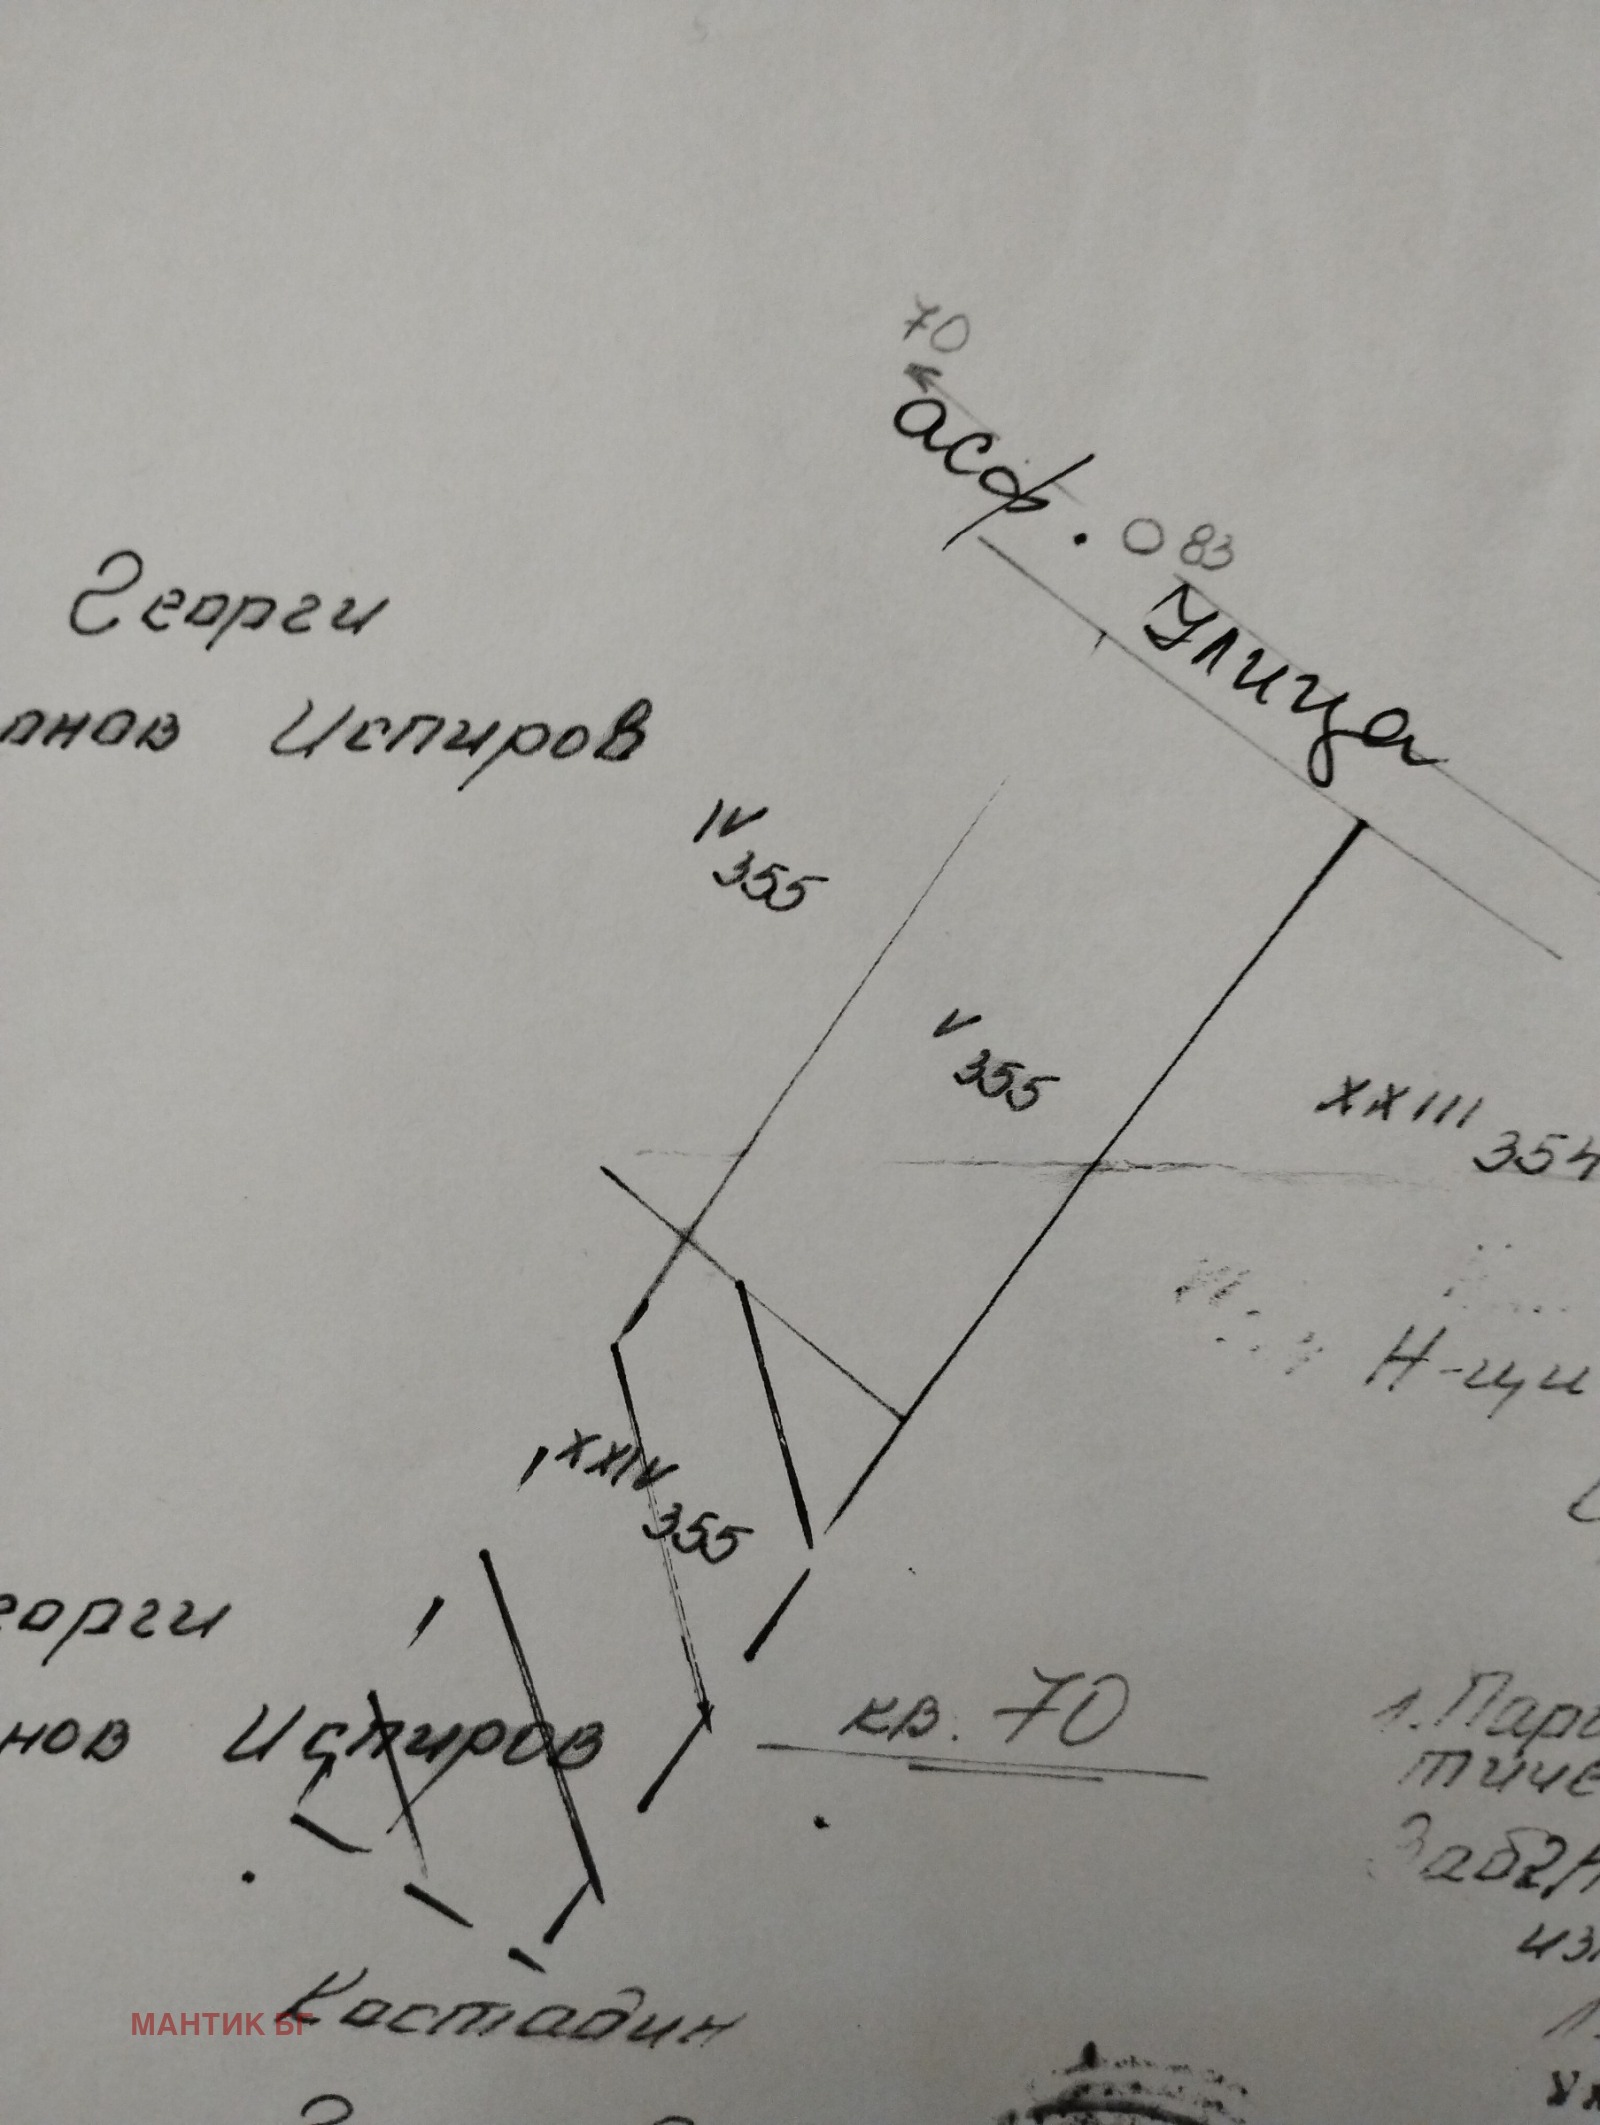 70
асф. 83
улица
Георги
онов Испиров
IV
355
V
355
XXIII
354
Н-ци
XXIV
355
еорги
нов Испиров
кв. 70
1. Пар
тиче
из
Костадин
МАНТИК БГ